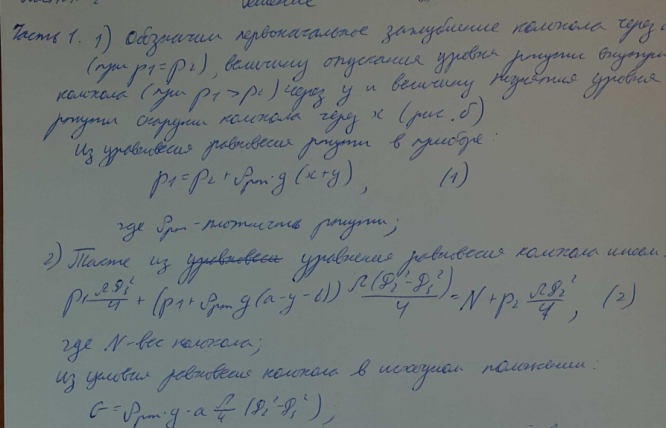 Решение
Часть 1. 1) Обозначим первоначальное заглубление колокола через
(при p1=p2), величину опускания уровня ртути внутри
колокола (при p1>p2) через y и величину поднятия уровня
ртути снаружи колокола через x (рис. б)
Из уравновесия равновесия ртути в приборе:
p1 = p2 + ρрт · g (x+y), (1)
где ρрт - плотность ртути;
2) Также из уравнения равновесия колокола имеем:
p1 πD1²/4 + (p1 + ρрт g (a-y-b)) π(D2²-D1²)/4 = N + p2 πD2²/4, (2)
где N - вес колокола;
Из условия равновесия колокола в исходном положении:
G = ρрт · g · a π/4 (D2²-D1²),